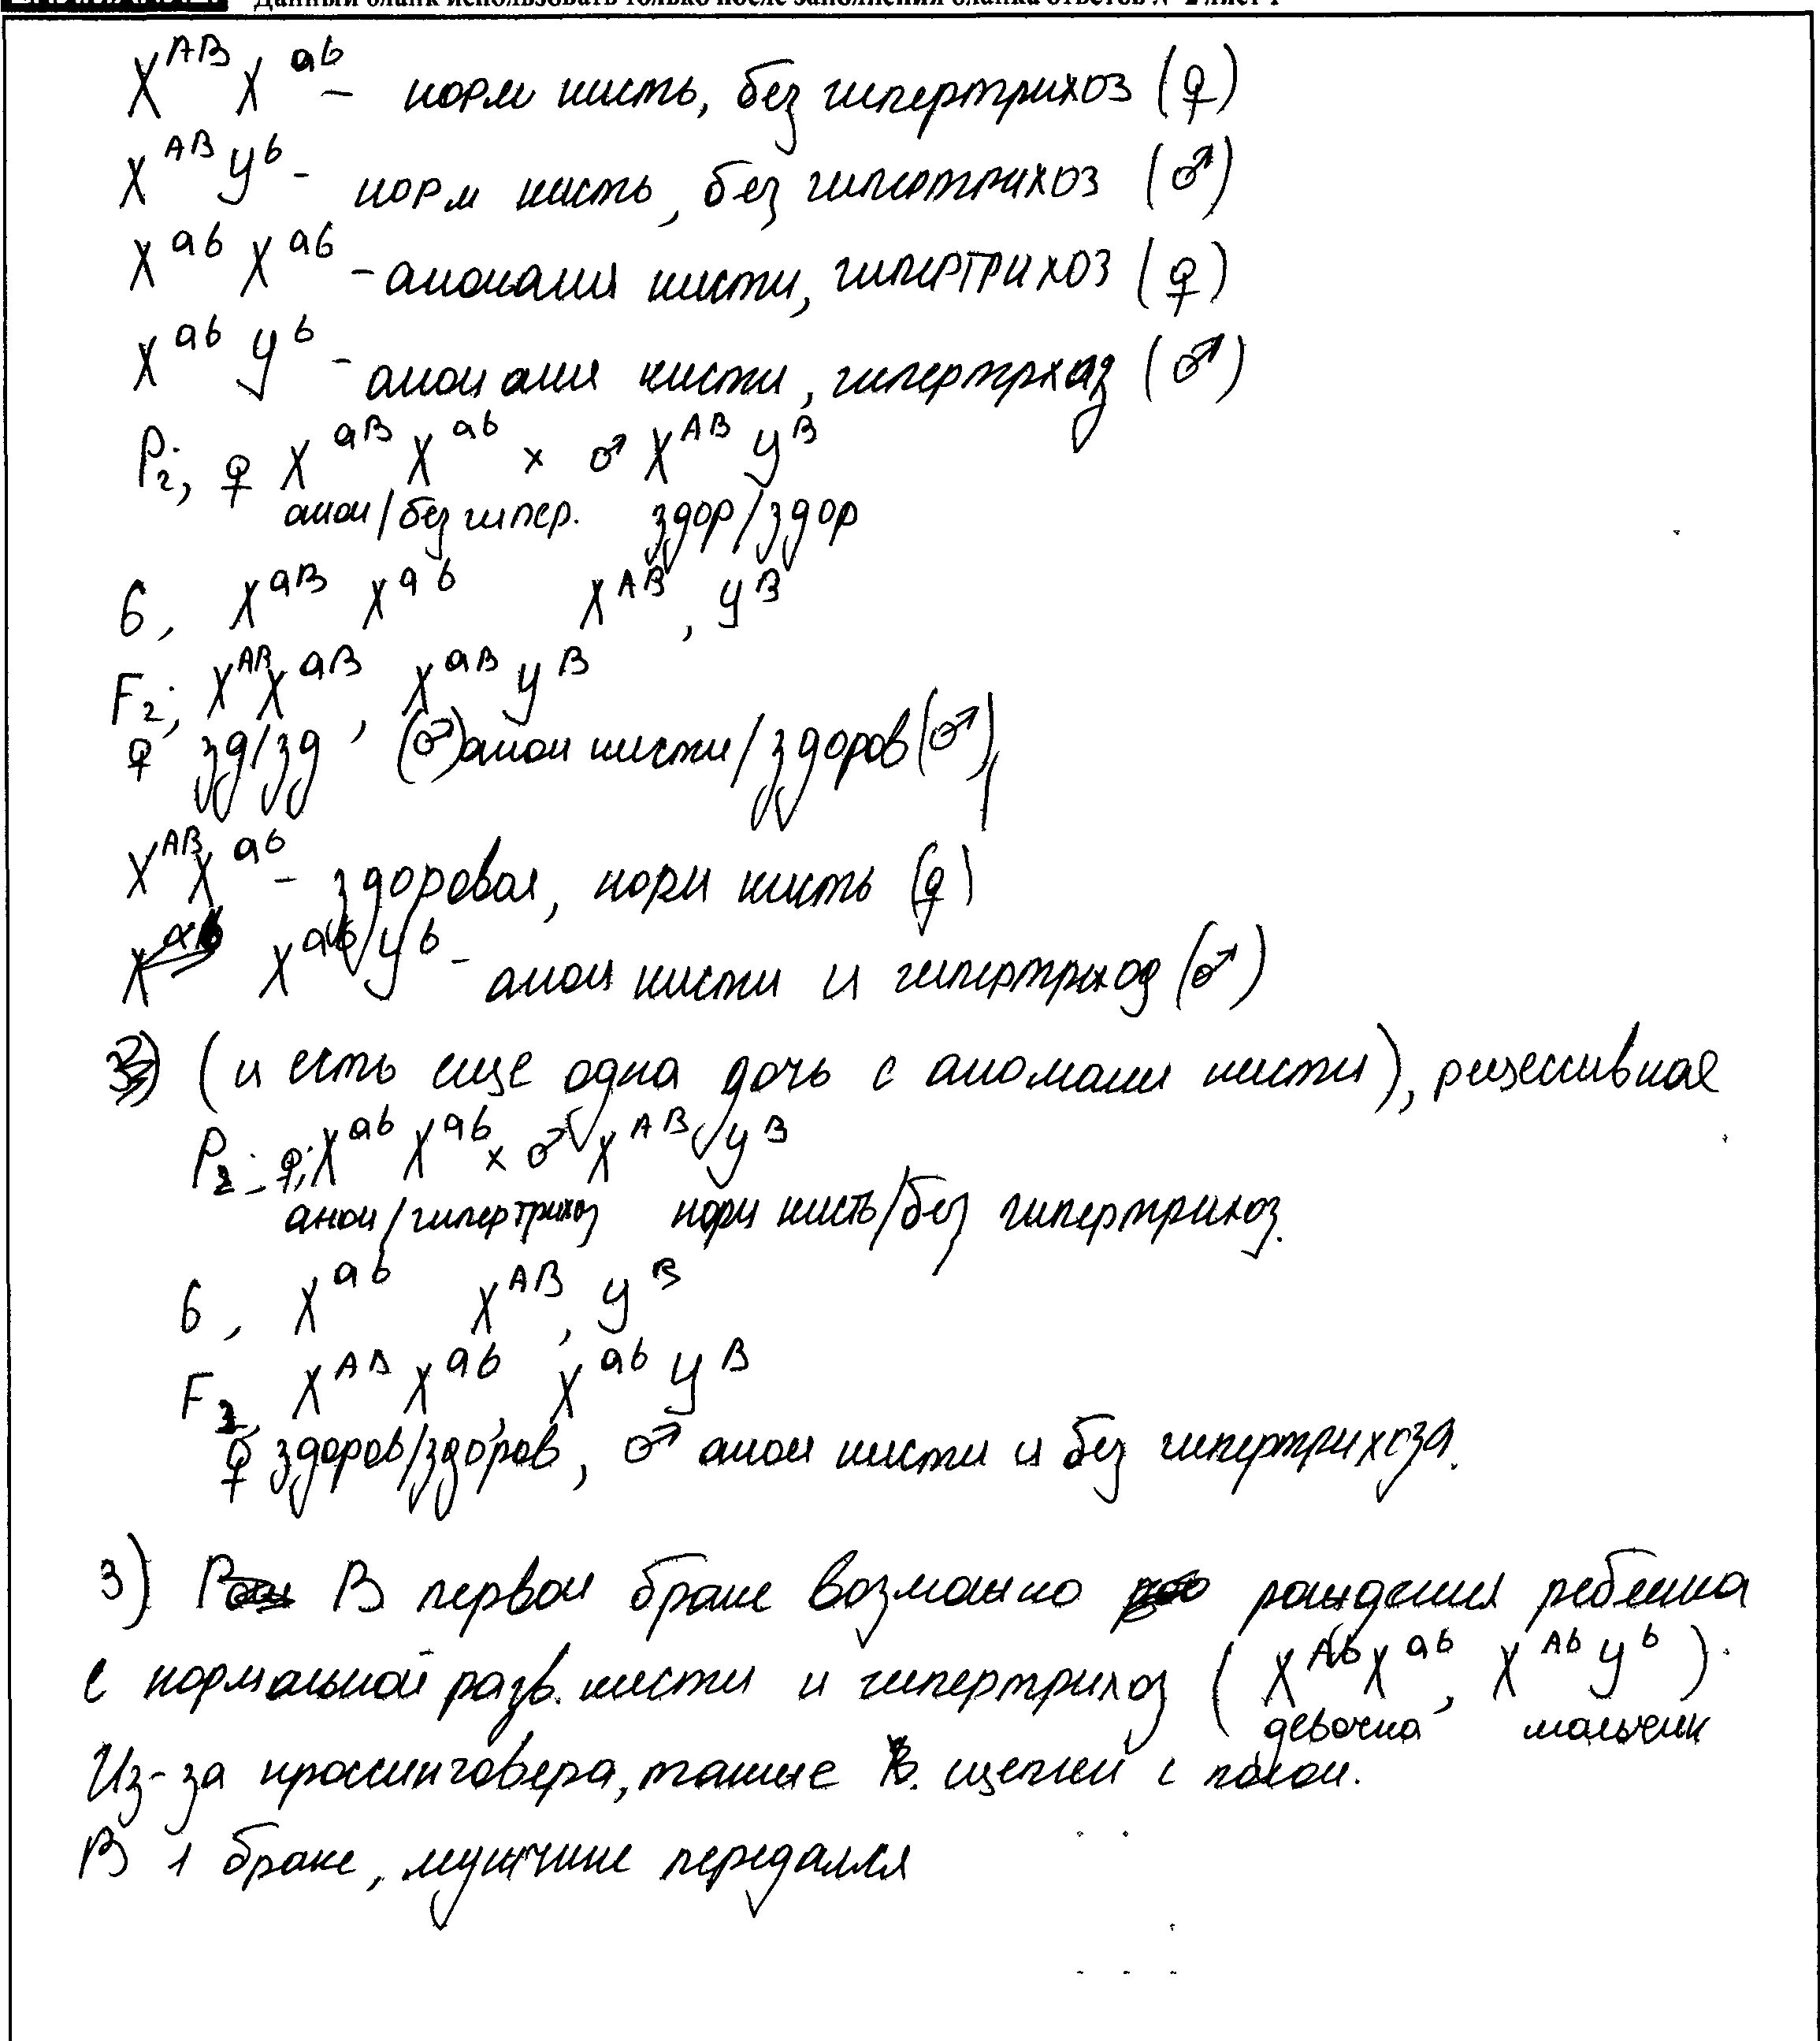 Данный бланк использовать только после заполнения бланка ответов № 2 лист 1
X^AB X^ab – норм кисть, без гипертрихоз (♀)
X^AB У^b - норм кисть, без гипертрихоз (♂)
X^ab X^ab – аномалия кисти, гипертрихоз (♀)
X^ab У^b – аномалия кисти, гипертрхоз (♂)
P₂; ♀ X^aB X^ab × ♂ X^AB У^B
аном/без гипер. здор/здор
G, X^aB X^ab X^AB, У^B
F₂; X^AB X^aB, X^aB У^B
♀ зд/зд, (♂) аном кисти/здоров (♂),
X^AB X^ab – здоровая, норм кисть (♀)
X^ab У^b – аном кисти и гипертрихоз (♂)
(и есть еще одна дочь с аномали кисти), рецессивная
P₂ - ♀; X^ab X^ab × ♂ X^AB У^B
аном/гипертрихоз норм кисть/без гипертрихоз.
G, X^ab X^AB, У^B
F₂, X^AB X^ab, X^ab У^B
♀ здоров/здоров, ♂ аном кисти и без гипертрихоза.
3) В первом браке возможно рождения ребенка
с нормальной разв. кисти и гипертрихоз (X^Ab X^ab, X^Ab У^b).
девочка мальчик
Из-за кроссинговера, также в. сцепки с полом.
В 1 браке, мужчине передался